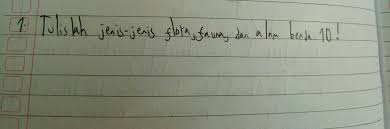 1. Tulislah jenis-jenis flora, fauna, dan alam benda 10!